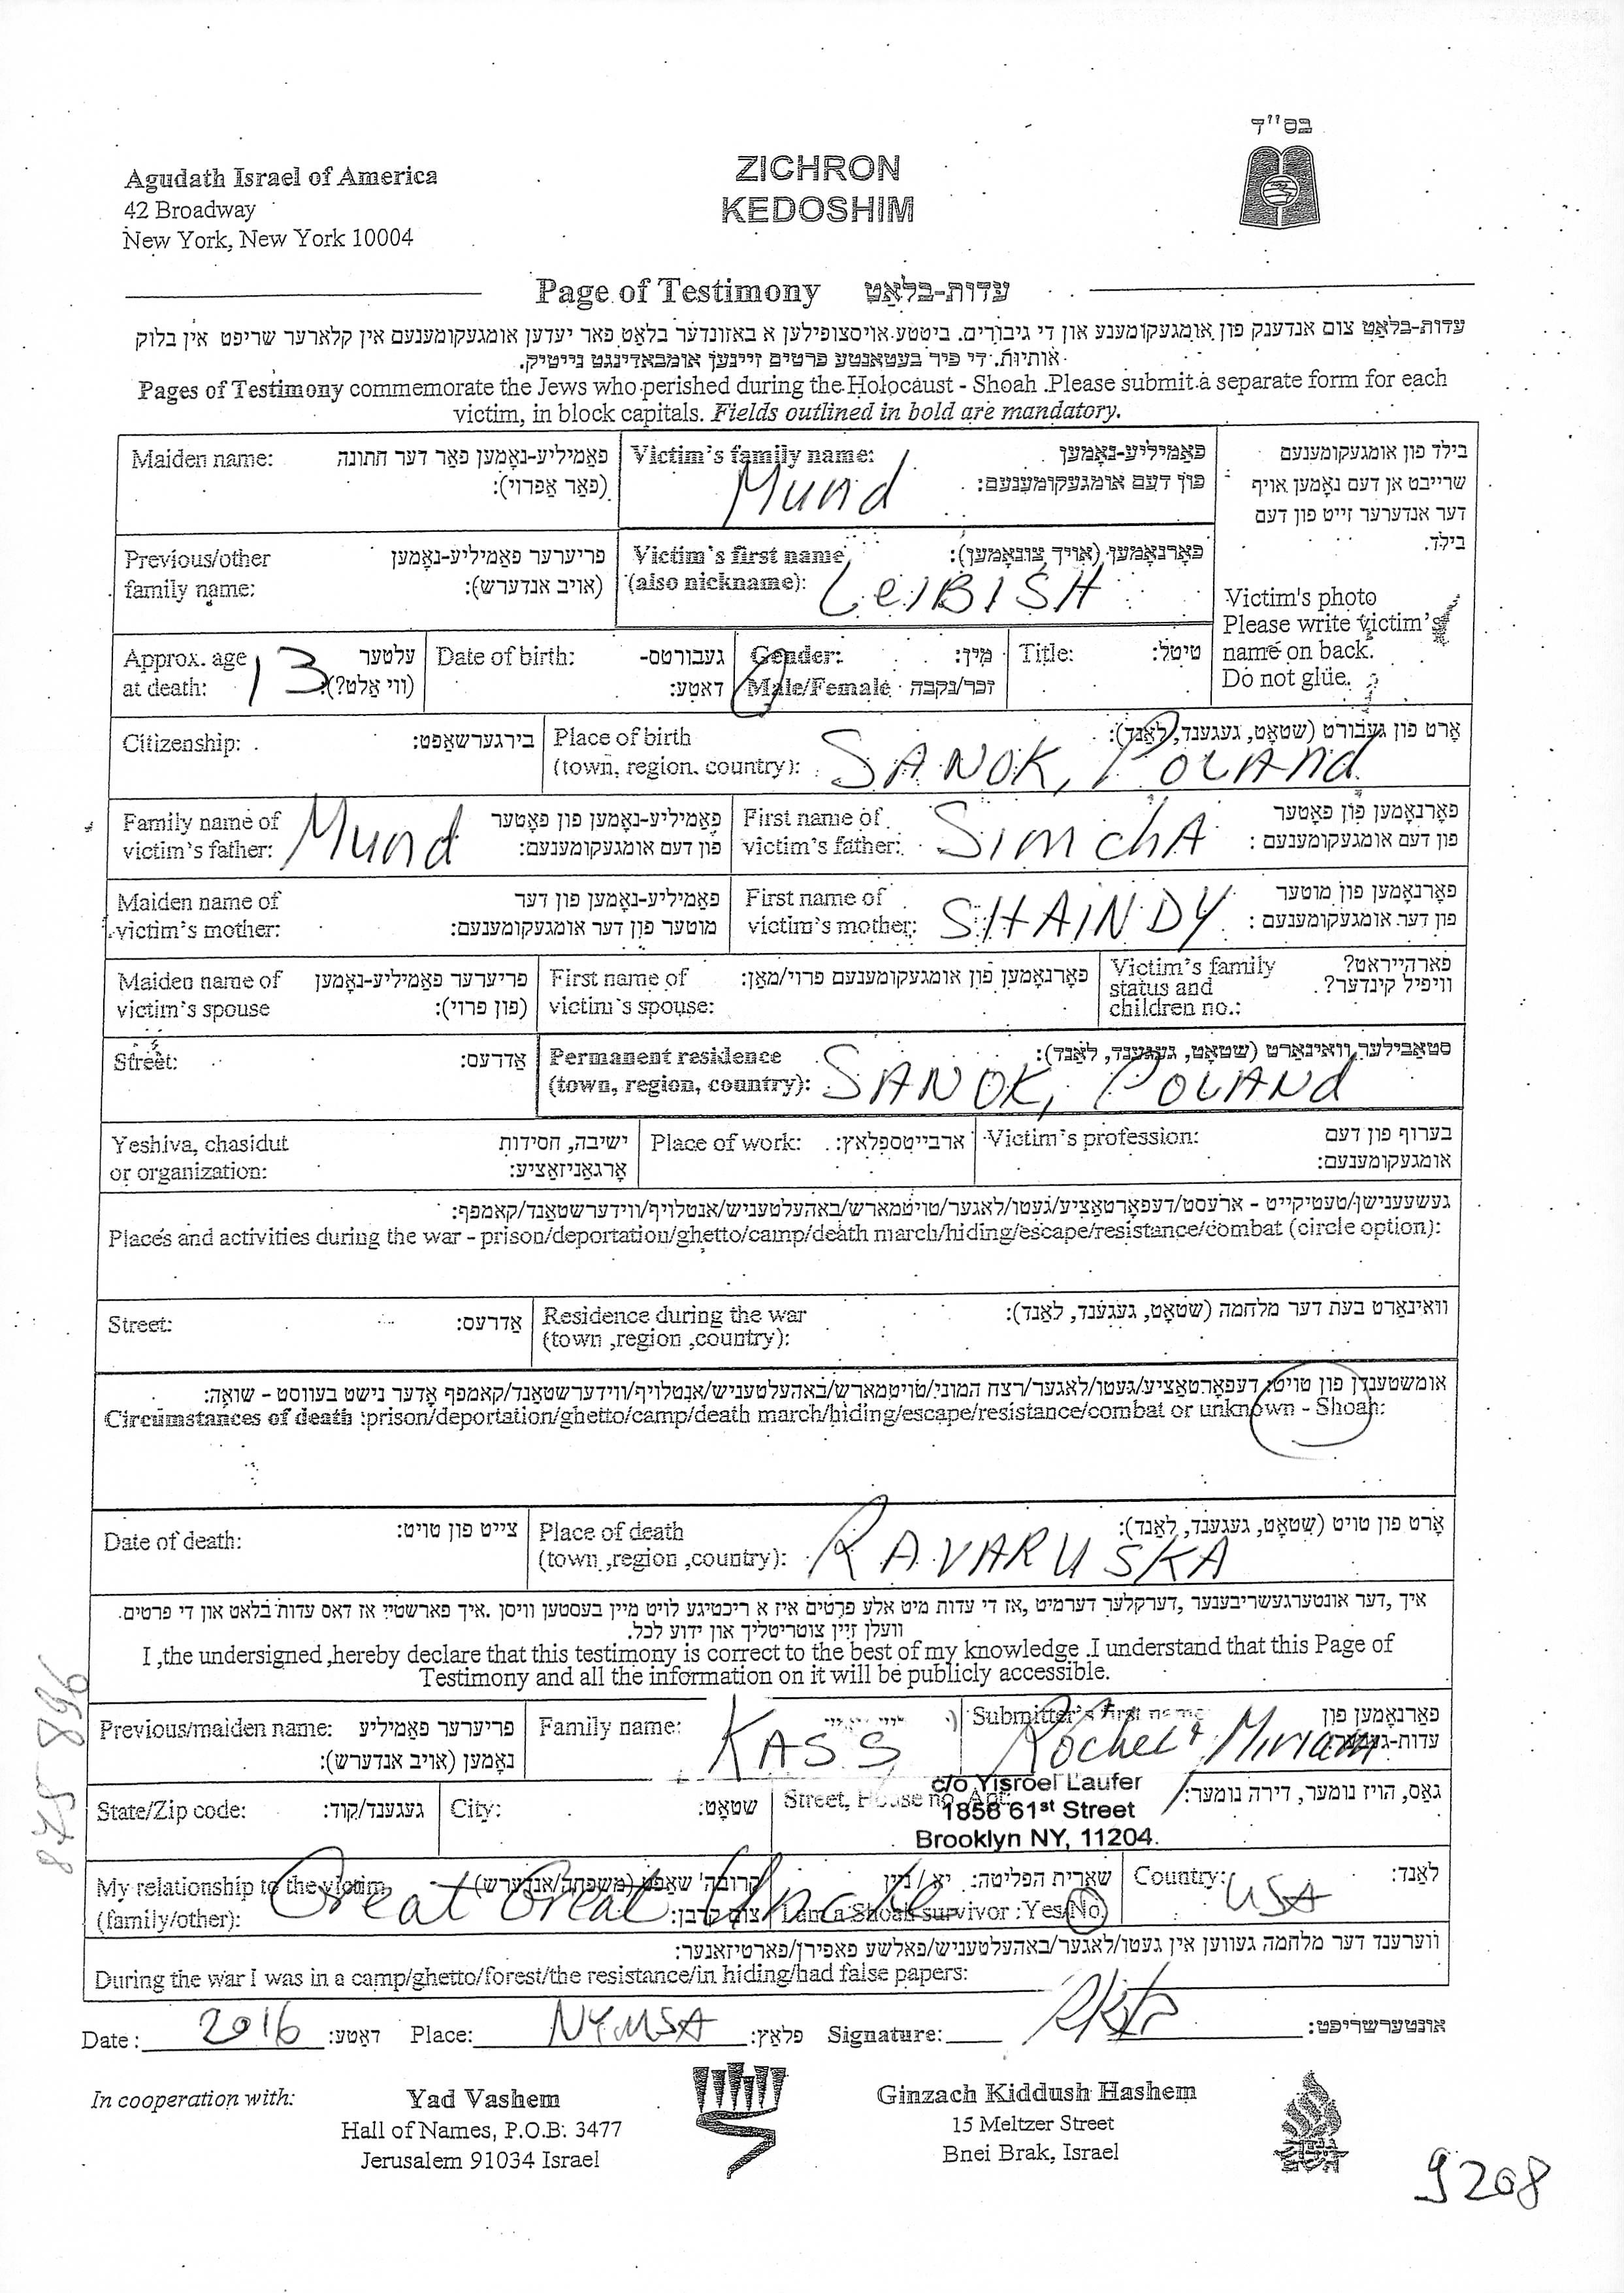 בס"ד
Agudath Israel of America
42 Broadway
New York, New York 10004
ZICHRON
KEDOSHIM
Page of Testimony עדות-בלאַט
עדות-בלאַט צום אנדענק פון אומגעקומענע און די גיבורים. ביטע אויסצופילען א באזונדער בלאט פאר יעדען אומגעקומענעם אין קלארער שריפט אין בלוק
אותיות. די פיר בעטאנטע פרטים זיינען אומבאדינגט נייטיק.
Pages of Testimony commemorate the Jews who perished during the Holocaust - Shoah .Please submit a separate form for each
victim, in block capitals. Fields outlined in bold are mandatory.
Maiden name: פאַמיליע-נאָמען פאַר דער חתונה
(פאַר אַפרוי):
Victim's family name: פאַמיליע-נאָמען
פון דעם אומגעקומענעם:
Mund
בילד פון אומגעקומענעם
שרייבט אן דעם נאָמען אויף
דער אנדערער זייט פון דעם
בילד.
Previous/other פריערער פאַמיליע-נאָמען
family name: (אויב אנדערש):
Victim's first name פאָרנאָמען (אויך צונאָמען):
(also nickname): LeIBISH
Victim's photo
Please write victim's
name on back.
Do not glue.
Approx. age עלטער
at death: 13 (ווי אַלט?):
Date of birth: געבורטס-
דאַטע:
Gender: מין:
Male/Female זכר/נקבה
Title: טיטל:
Citizenship: בירגערשאַפט:
Place of birth אָרט פון געבורט (שטאָט, געגענד, לאַנד):
(town, region, country): SANOK, POLAND
Family name of פאַמיליע-נאָמען פון פאָטער
victim's father: Mund פון דעם אומגעקומענעם:
First name of פאָרנאָמען פון פאָטער
victim's father: SimchA פון דעם אומגעקומענעם:
Maiden name of פאַמיליע-נאָמען פון דער
victim's mother: מוטער פון דער אומגעקומענעם:
First name of פאָרנאָמען פון מוטער
victim's mother: SHAINDY פון דער אומגעקומענעם:
Maiden name of פריערער פאַמיליע-נאָמען
victim's spouse (פון פרוי):
First name of פאָרנאָמען פון אומגעקומענעם פרוי/מאַן:
victim's spouse:
Victim's family פארהייראט?
status and וויפיל קינדער?
children no.:
Street: אַדרעס:
Permanent residence סטאַבילער וואוינאָרט (שטאָט, געגענד, לאַנד):
(town, region, country): SANOK, POLAND
Yeshiva, chasidut ישיבה, חסידות
or organization: אָרגאַניזאַציע:
Place of work: ארבייטספלאַץ:
Victim's profession: בערוף פון דעם
אומגעקומענעם:
געשעענישן/טעטיקייט - ארעסט/דעפּאָרטאַציע/געטו/לאַגער/טויטמארש/באַהעלטעניש/אנטלויף/ווידערשטאַנד/קאמפף:
Places and activities during the war - prison/deportation/ghetto/camp/death march/hiding/escape/resistance/combat (circle option):
Street: אַדרעס:
Residence during the war וואוינאָרט בעת דער מלחמה (שטאָט, געגענד, לאַנד):
(town ,region ,country):
אומשטענדן פון טויט: דעפּאָרטאַציע/געטו/לאַגער/רצח המוני/טויטמארש/באַהעלטעניש/אנטלויף/ווידערשטאַנד/קאמפף אָדער נישט בעוווסט - שואה:
Circumstances of death :prison/deportation/ghetto/camp/death march/hiding/escape/resistance/combat or unknown - Shoah:
Date of death: צייט פון טויט:
Place of death אָרט פון טויט (שטאָט, געגענד, לאַנד):
(town ,region ,country): RAVARUSKA
איך, דער אונטערגעשריבענער, דערקלער דערמיט, אז די עדות מיט אלע פרטים איז א ריכטיגע לויט מיין בעסטען וויסן. איך פארשטיי אז דאס עדות בלאט און די פרטים
וועלן זיין צוטריטליך און ידוע לכל.
I ,the undersigned ,hereby declare that this testimony is correct to the best of my knowledge .I understand that this Page of
Testimony and all the information on it will be publicly accessible.
875 896
Previous/maiden name: פריערער פאַמיליע
נאָמען (אויב אנדערש):
Family name: KASS
Submitter's first name פאָרנאָמען פון
Rochel Miriam
State/Zip code: געגענד/קוד:
City: שטאָט:
Street, House no. Apt: גאַס, הויז נומער, דירה נומער:
c/o Yisroel Laufer
1856 61st Street
Brooklyn NY, 11204.
My relationship to the victim קרובה'שאַפט (משפחה/אנדערש)
(family/other): Great Great Uncle צום קרבן:
שארית הפליטה: יא / ניין
I am a Shoah survivor :Yes/No
Country: USA לאַנד:
ווערענד דער מלחמה געווען אין געטו/לאַגער/באַהעלטעניש/פאלשע פאפירן/פארטיזאנער:
During the war I was in a camp/ghetto/forest/the resistance/in hiding/had false papers:
Date : 2016 דאַטע: Place: NY USA פלאַץ: Signature: אונטערשריפט:
In cooperation with:
Yad Vashem
Hall of Names, P.O.B. 3477
Jerusalem 91034 Israel
Ginzach Kiddush Hashem
15 Meltzer Street
Bnei Brak, Israel
9208